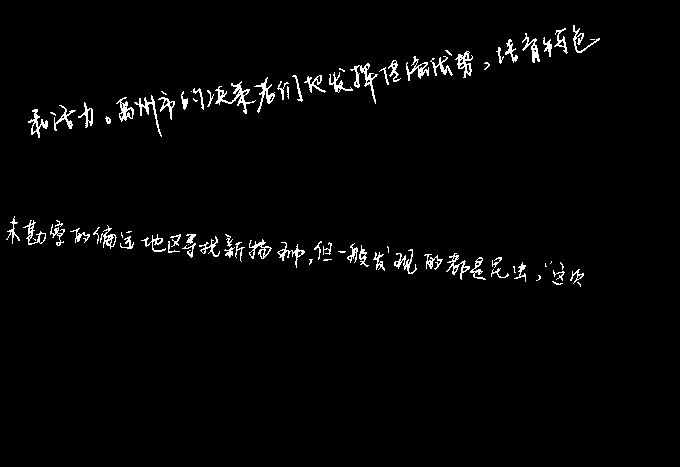 和活力。禹州市的决策者们把发挥传统优势，培育特色
未勘察的偏远地区寻找新物种，但一般发现的都是昆虫，“这次